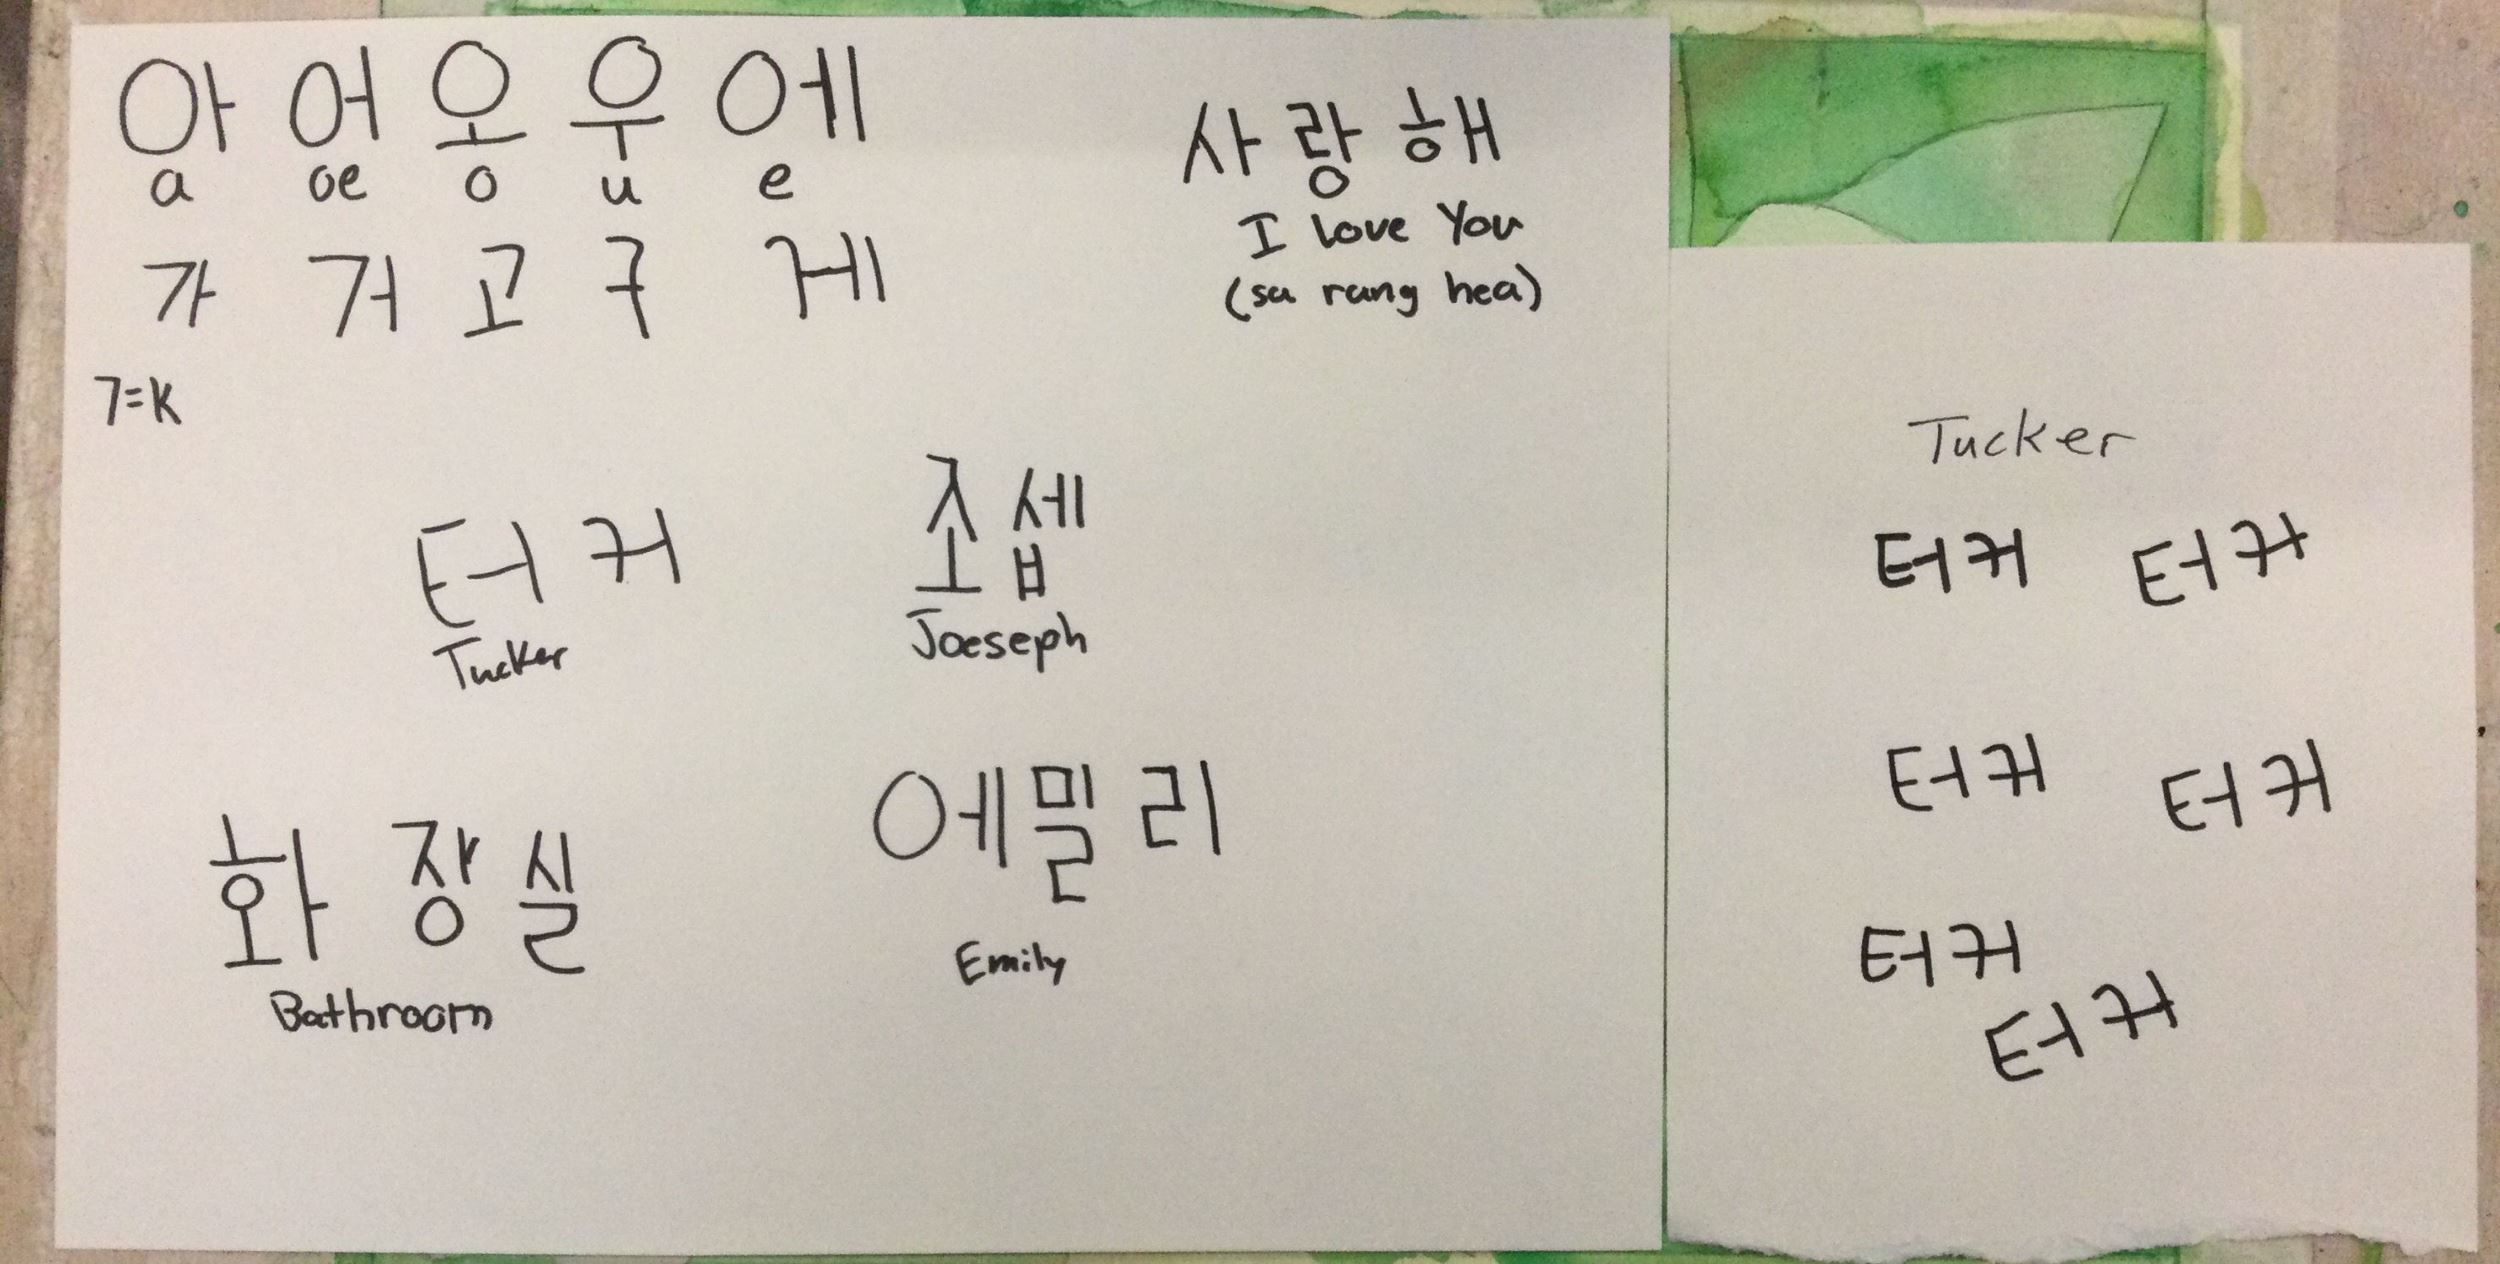 아 어 오 우 에
a oe o u e
가 거 고 구 게
ㄱ=K
사랑해
I love You
(sa rang hea)
터커
Tucker
조셉
Joeseph
화장실
Bathroom
에밀리
Emily
Tucker
터커 터커
터커 터커
터커
터커